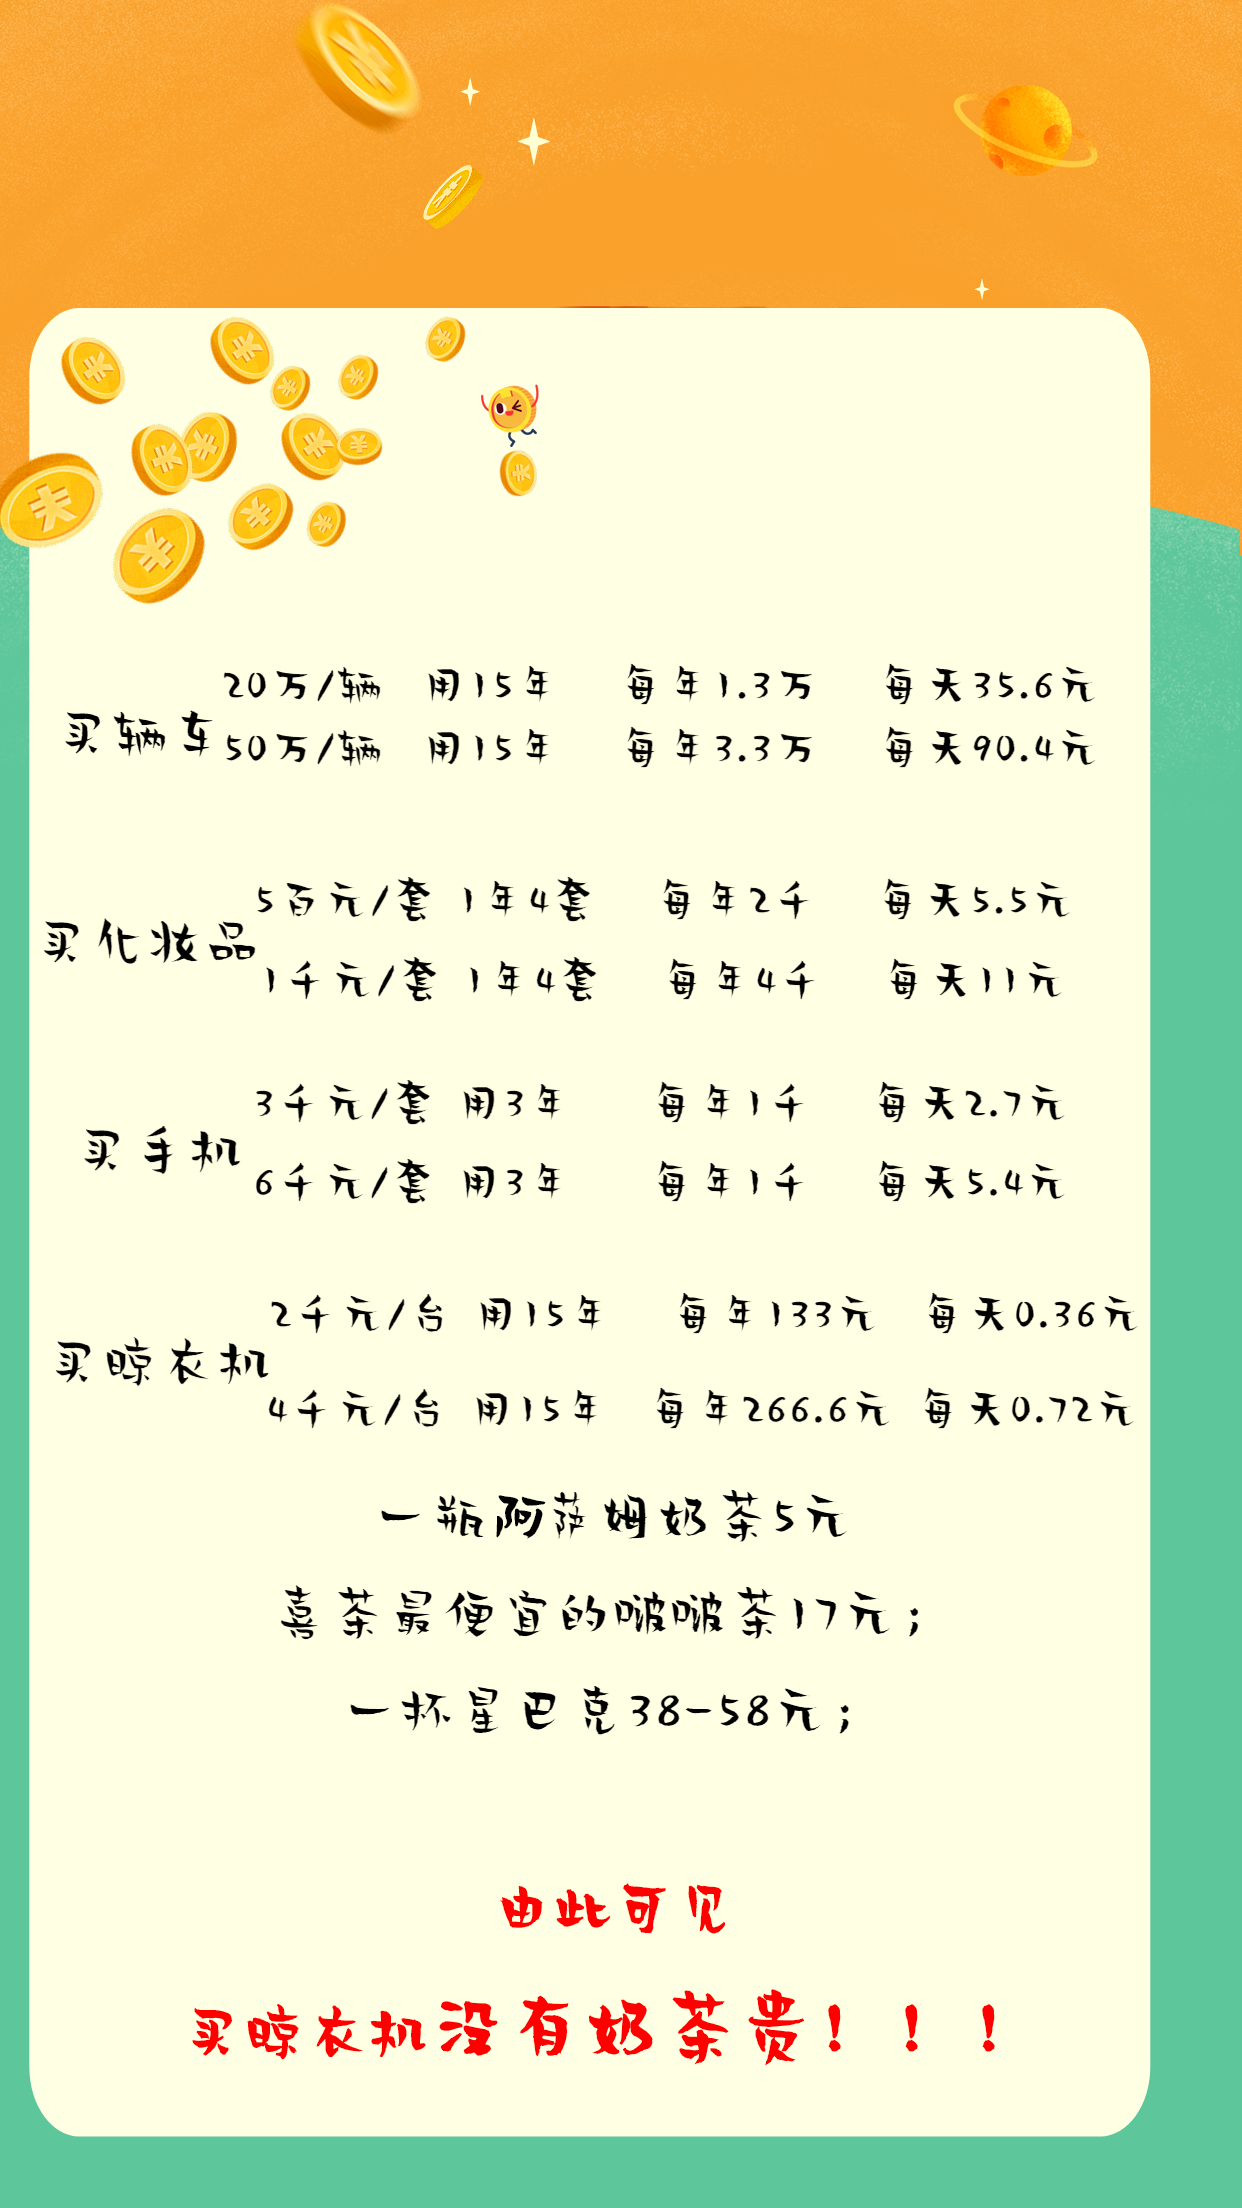 买辆车
20万/辆 用15年 每年1.3万 每天35.6元
50万/辆 用15年 每年3.3万 每天90.4元
买化妆品
5百元/套 1年4套 每年2千 每天5.5元
1千元/套 1年4套 每年4千 每天11元
买手机
3千元/套 用3年 每年1千 每天2.7元
6千元/套 用3年 每年1千 每天5.4元
买晾衣机
2千元/台 用15年 每年133元 每天0.36元
4千元/台 用15年 每年266.6元 每天0.72元
一瓶阿萨姆奶茶5元
喜茶最便宜的啵啵茶17元；
一杯星巴克38-58元；
由此可见
买晾衣机没有奶茶贵！！！